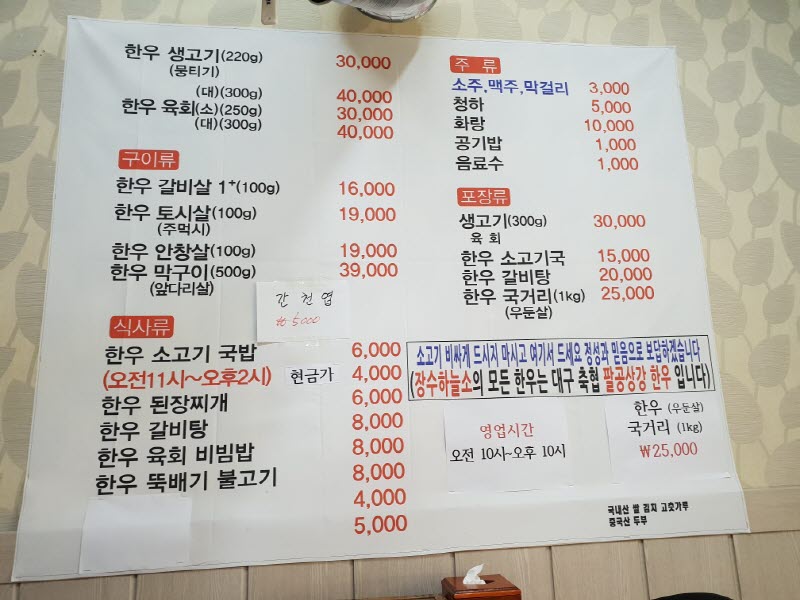 한우 생고기(220g) 30,000
(뭉티기)
(대)(300g) 40,000
한우 육회(소)(250g) 30,000
(대)(300g) 40,000
구이류
한우 갈비살 1+(100g) 16,000
한우 토시살(100g) 19,000
(주먹시)
한우 안창살(100g) 19,000
한우 막구이(500g) 39,000
(앞다리살)
간 천엽
₩5000
식사류
한우 소고기 국밥 6,000
(오전11시~오후2시) 현금가 4,000
한우 된장찌개 6,000
한우 갈비탕 8,000
한우 육회 비빔밥 8,000
한우 뚝배기 불고기 8,000
4,000
5,000
주 류
소주,맥주,막걸리 3,000
청하 5,000
화랑 10,000
공기밥 1,000
음료수 1,000
포장류
생고기(300g) 30,000
육 회
한우 소고기국 15,000
한우 갈비탕 20,000
한우 국거리(1kg) 25,000
(우둔살)
소고기 비싸게 드시지 마시고 여기서 드세요 정성과 믿음으로 보답하겠습니다
(장수하늘소의 모든 한우는 대구 축협 팔공상강 한우 입니다)
영업시간
오전 10시~오후 10시
한우 (우둔살)
국거리 (1kg)
₩25,000
국내산 쌀 김치 고춧가루
중국산 두부